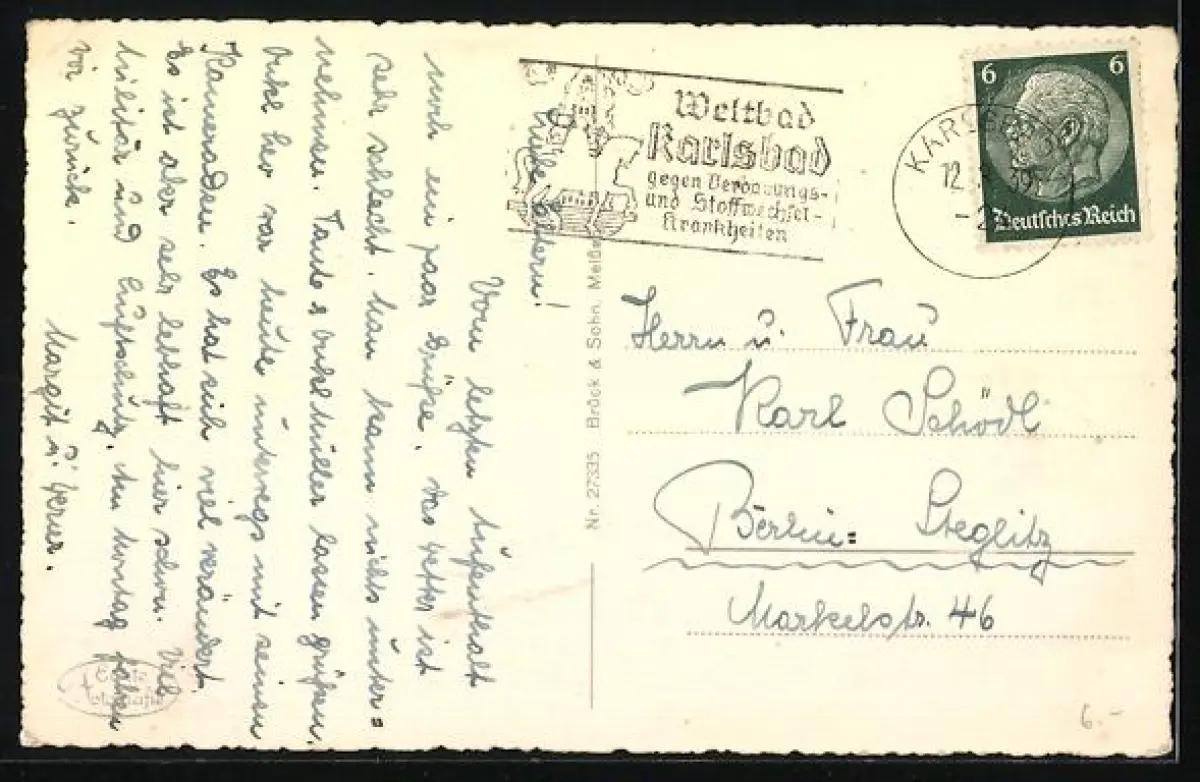 Liebe Eltern!
Vom letzten Aufenthalt
noch ein paar Grüße. Das Wetter ist
sehr schlecht. Man kann nichts unter=
nehmen. Tante & Onkel Müller lassen grüßen.
Onkel war heute unterwegs mit seinen
Kameraden. Es hat sich viel verändert.
Es ist aber sehr lebhaft hier schon. Viel
Militär und Luftschutz. Am Montag fahren
wir zurück.
Margit u. Werner.
Echte
Fotografie
Nr. 27335 Brück & Sohn. Meiße
Weltbad
Karlsbad
gegen Verdauungs-
und Stoffwechsel-
Krankheiten
KARLSBAD
12. 39
6 6
Deutsches Reich
Herrn u. Frau
Karl Schödl
Berlin= Steglitz
Markelstr. 46
6.-